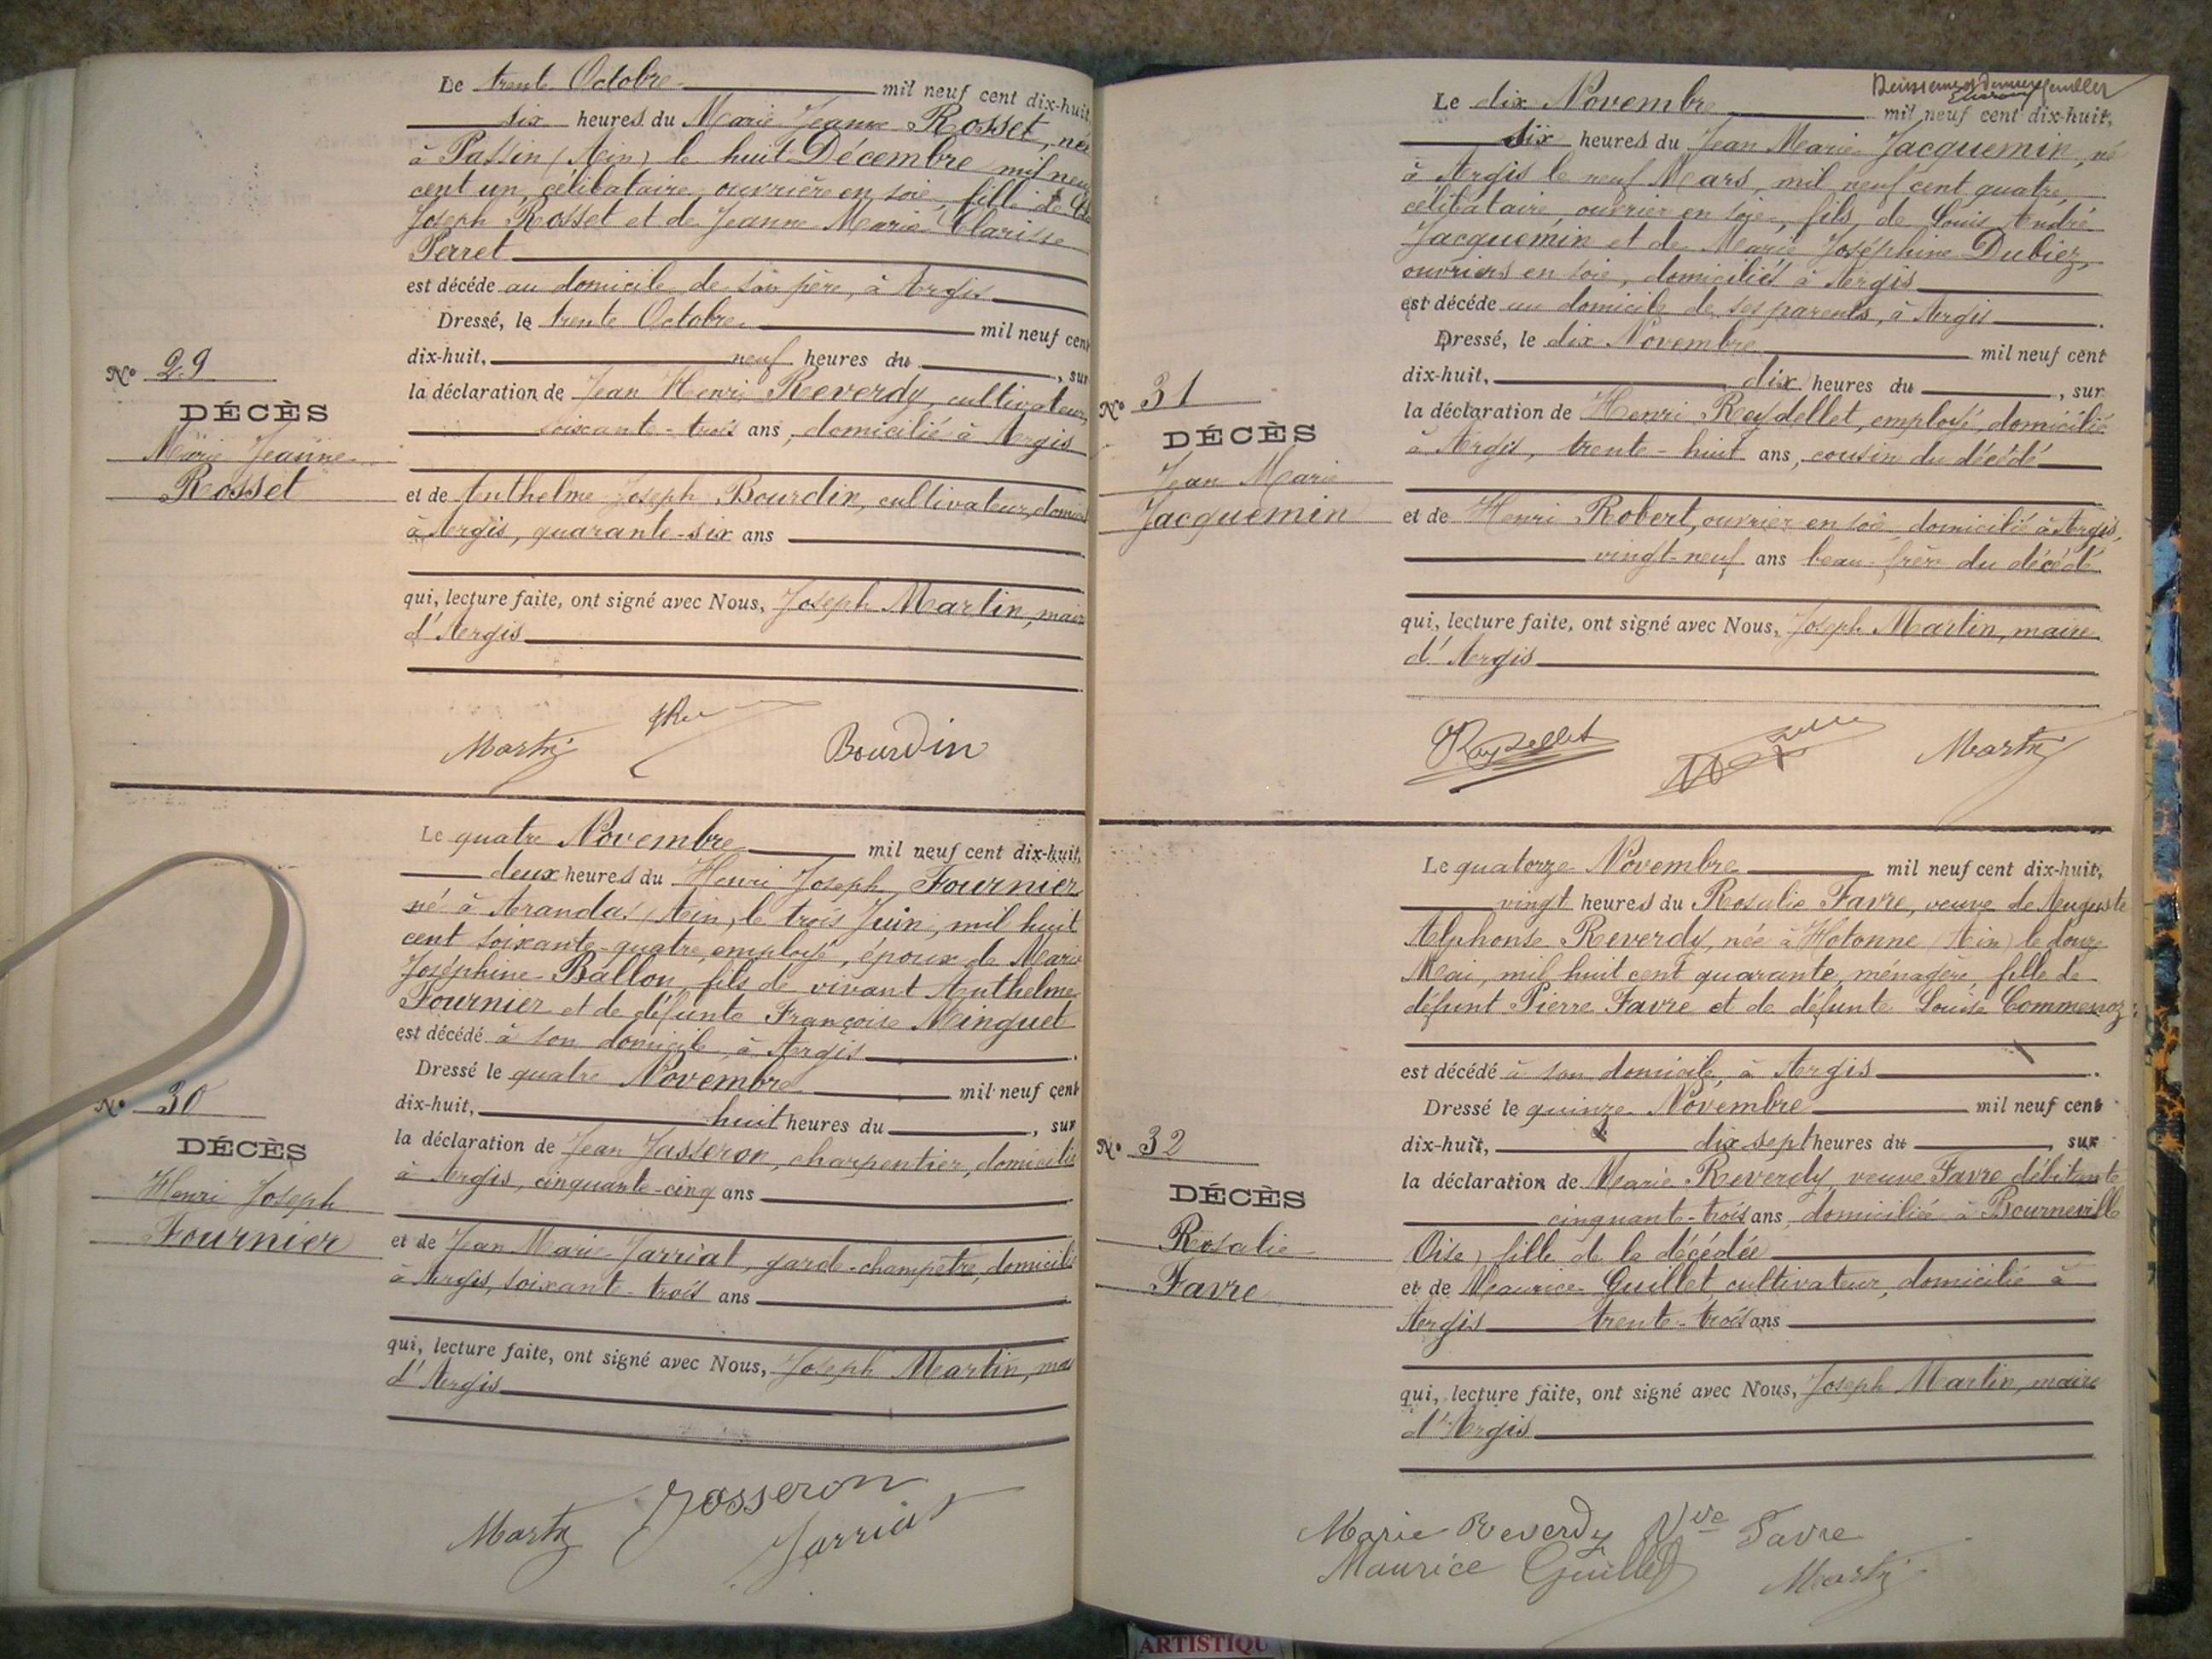 Le trente Octobre mil neuf cent dix-huit
six heures du Marie Jeanne Rosset, née
à Passin (Ain) le huit Décembre mil neuf
cent un, célibataire, ouvrière en soie, fille de
Joseph Rosset et de Jeanne Marie Clarisse
Perret
est décédé au domicile de son père, à Argis
Dressé, le trente Octobre mil neuf cent
dix-huit, neuf heures du , sur
la déclaration de Jean Henri Reverdy, cultivateur,
soixante-trois ans, domicilié à Argis
et de Anthelme Joseph Bourdin, cultivateur, domici
à Argis, quarante-six ans
qui, lecture faite, ont signé avec Nous, Joseph Martin, maire
d'Argis
No 29
DÉCÈS
Marie Jeanne
Rosset
Martin
Bourdin
Le quatre Novembre mil neuf cent dix-huit,
deux heures du Henri Joseph Fournier
né à Arandas (Ain) le trois Juin, mil huit
cent soixante-quatre, employé, époux de Marie
Joséphine Ballon, fils de vivant Anthelme
Fournier et de défunte Françoise Minguet
est décédé à son domicile, à Argis
Dressé le quatre Novembre mil neuf cent
dix-huit, huit heures du , sur
la déclaration de Jean Jasseron, charpentier, domicilié
à Argis, cinquante-cinq ans
et de Jean Marie Jarriat, garde-champêtre, domicilié
à Argis, soixante-trois ans
qui, lecture faite, ont signé avec Nous, Joseph Martin, mai
d'Argis
No 30
DÉCÈS
Henri Joseph
Fournier
Martin Josseron
Jarriat
Le dix Novembre mil neuf cent dix-huit,
six heures du Jean Marie Jacquemin, né
à Argis le neuf Mars, mil neuf cent quatre,
célibataire, ouvrier en soie, fils de Louis André
Jacquemin et de Marie Joséphine Dubiez,
ouvriers en soie, domiciliés à Argis
est décédé au domicile de ses parents, à Argis
Dressé, le dix Novembre mil neuf cent
dix-huit, dix heures du , sur
la déclaration de Henri Reydellet, employé, domicilié
à Argis, trente-huit ans, cousin du décédé
et de Henri Robert, ouvrier en soie, domicilié à Argis,
vingt-neuf ans beau-frère du décédé
qui, lecture faite, ont signé avec Nous, Joseph Martin, maire
d'Argis
No 31
DÉCÈS
Jean Marie
Jacquemin
Reydellet
Martin
Le quatorze Novembre mil neuf cent dix-huit,
vingt heures du Rosalie Favre, veuve de Auguste
Alphonse Reverdy, née à Hotonne (Ain) le douze
Mai, mil huit cent quarante, ménagère, fille de
défunt Pierre Favre et de défunte Louise Commenoz
est décédé à son domicile, à Argis
Dressé le quinze Novembre mil neuf cent
dix-huit, dix sept heures du , sur
la déclaration de Marie Reverdy, veuve Favre débitante
cinquante-trois ans, domiciliée à Bourneville
Oise) fille de la décédée
et de Maurice Guillet, cultivateur, domicilié à
Argis trente-trois ans
qui, lecture faite, ont signé avec Nous, Joseph Martin, maire
d'Argis
No 32
DÉCÈS
Rosalie
Favre
Marie Reverdy Vve Favre
Maurice Guillet Martin
ARTISTIQU